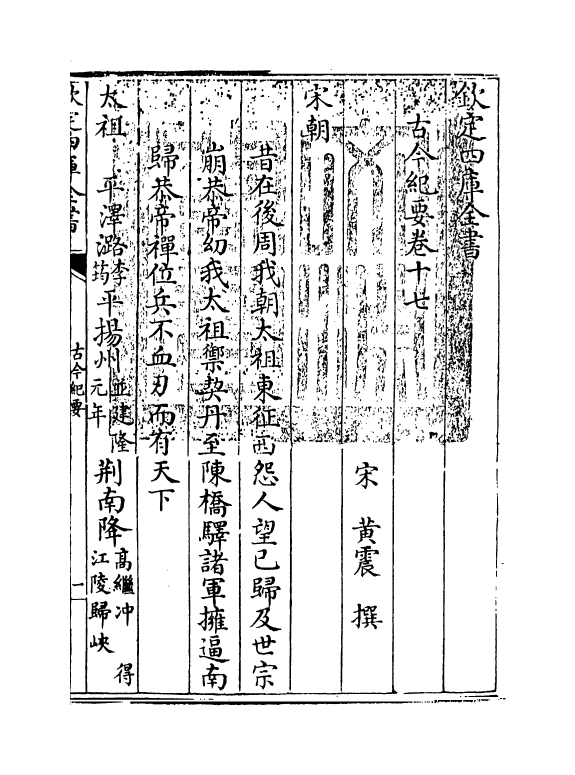 欽定四庫全書
古今紀要卷十七
宋 黄震 撰
宋朝
昔在後周我朝太祖東征西怨人望已歸及世宗
崩恭帝幼我太祖禦契丹至陳橋驛諸軍擁逼南
歸恭帝禪位兵不血刃而有天下
太祖 平澤潞李筠平揚州並建隆元年荆南降高繼冲得江陵歸峽
欽定四庫全書
古今紀要
一